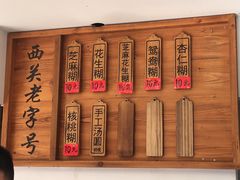 西关老字号
芝麻糊
10元
花生糊
10元
芝麻花生糊
鸳鸯糊
10元
杏仁糊
10元
核桃糊
10元
手工汤圆